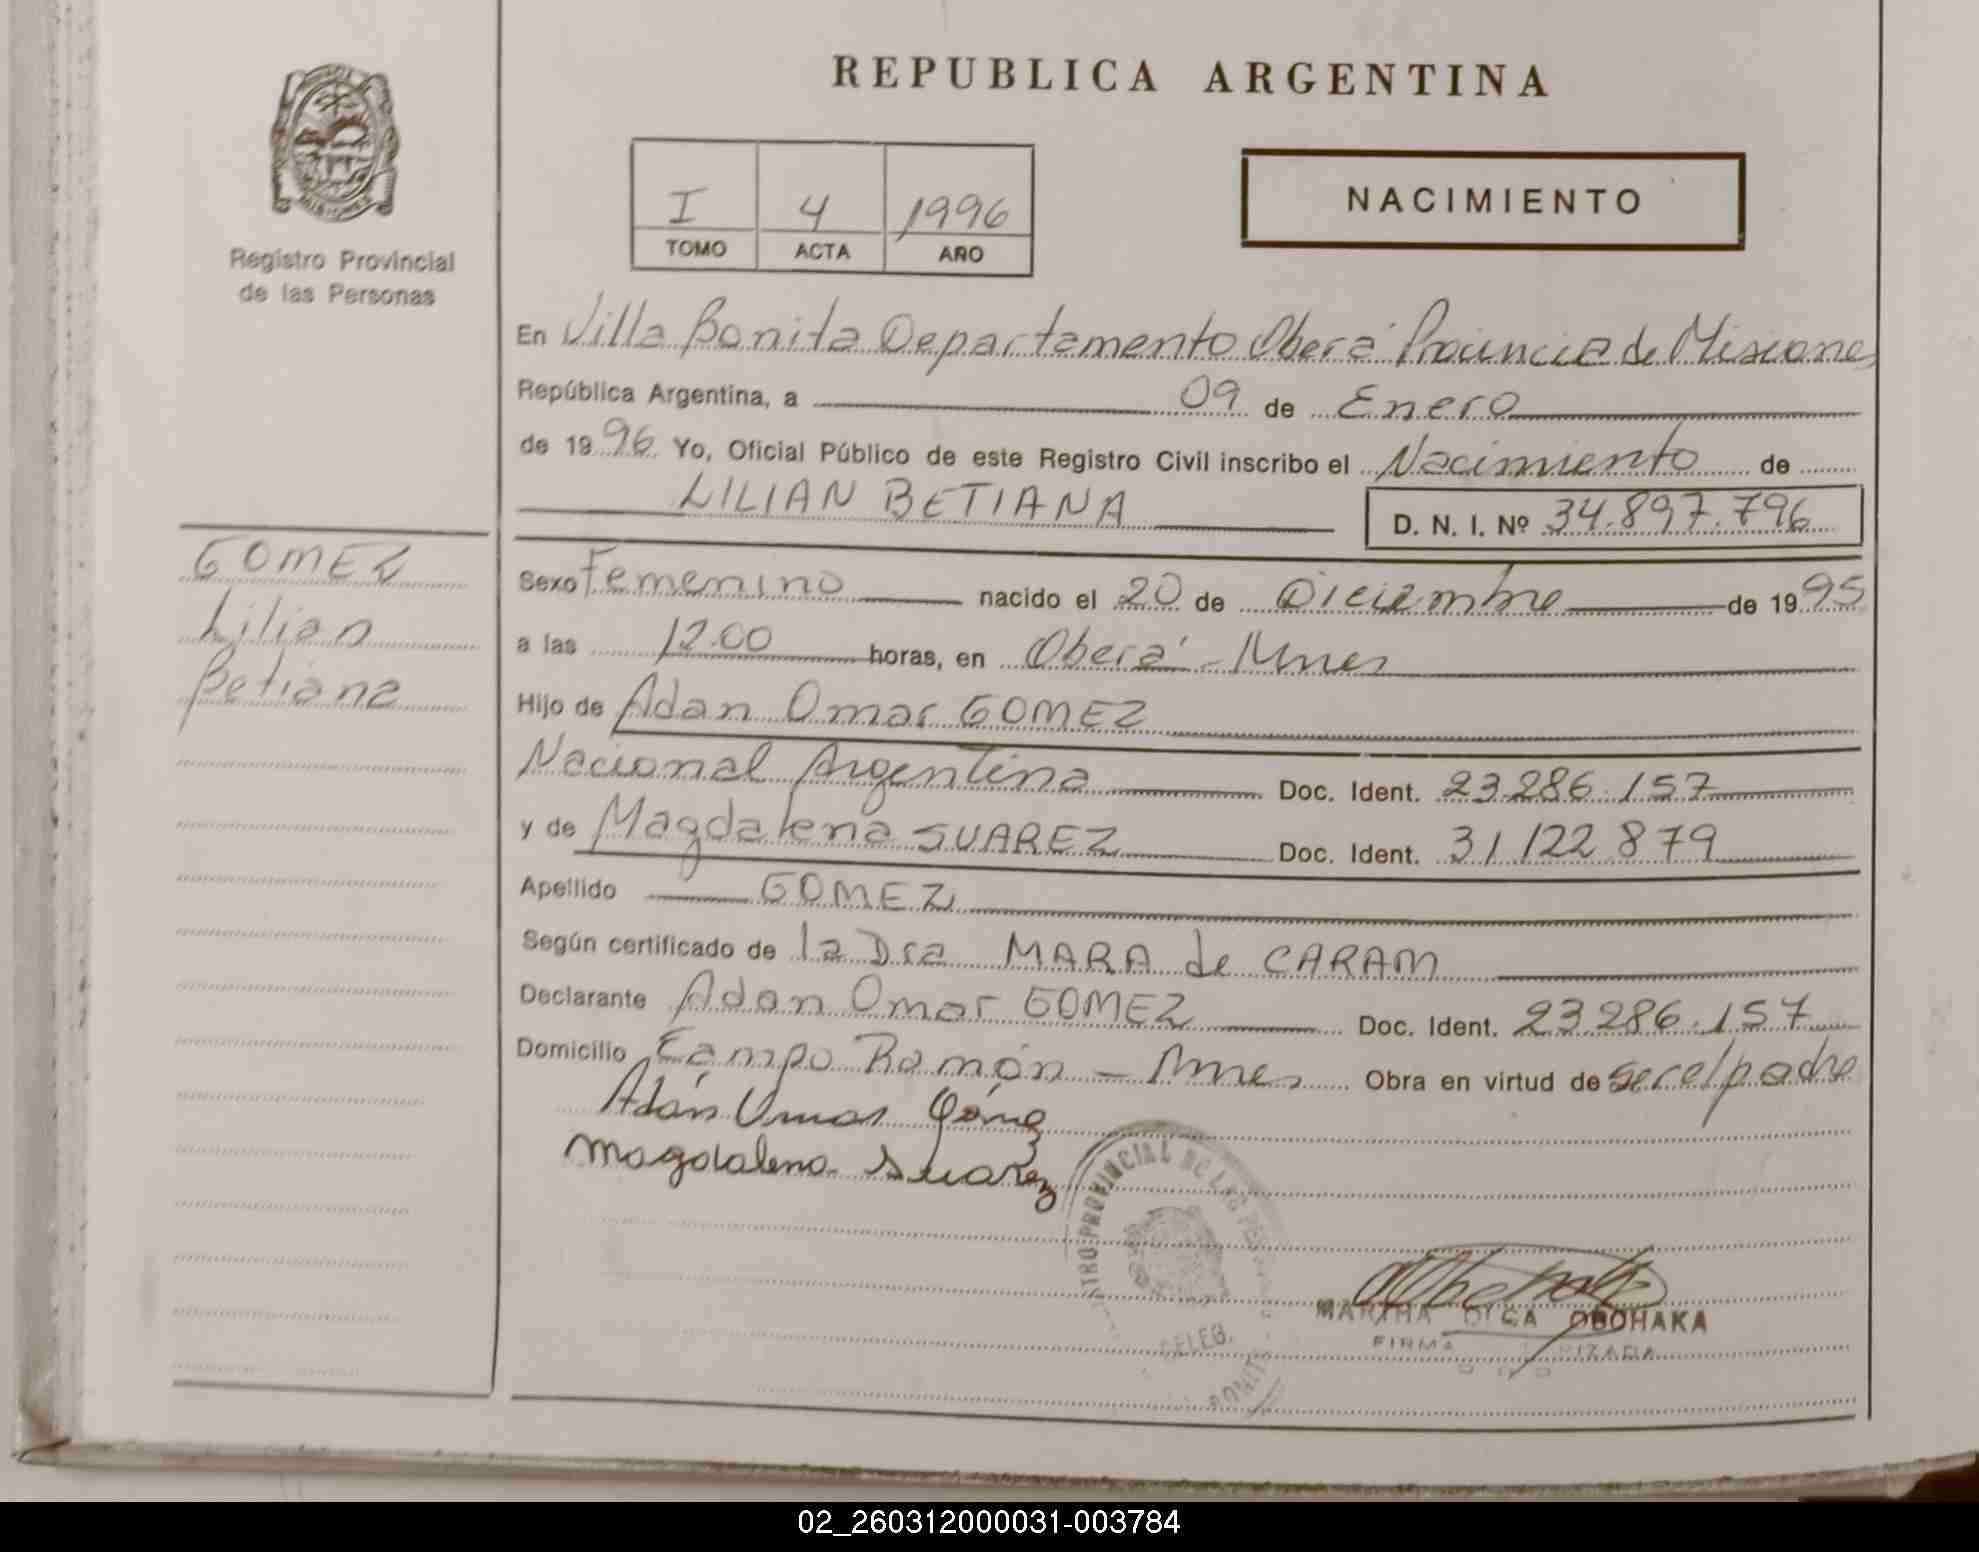 REPUBLICA ARGENTINA
MISIONES
Registro Provincial
de las Personas
I 4 1996
TOMO ACTA AÑO
NACIMIENTO
En Villa Bonita Departamento Oberá Provincia de Misiones
República Argentina, a 09 de Enero
de 1996 Yo, Oficial Público de este Registro Civil inscribo el Nacimiento de
LILIAN BETIANA D. N. I. Nº 34.897.796
GOMEZ
Lilian
Betiana
Sexo Femenino nacido el 20 de Diciembre de 1995
a las 12.00 horas, en Oberá - Mnes
Hijo de Adan Omar GOMEZ
Nacional Argentina Doc. Ident. 23.286.157
y de Magdalena SUAREZ Doc. Ident. 31.122.879
Apellido GOMEZ
Según certificado de la Dra MARA de CARAM
Declarante Adan Omar GOMEZ Doc. Ident. 23.286.157
Domicilio Campo Ramón - Mnes Obra en virtud de ser el padre
Adán Omar Gómez
Magdalena Suarez
TRO PROVINCIAL DE LAS PER
DELEG.
BONIT
MARTHA OLGA
FIRMA
02_260312000031-003784